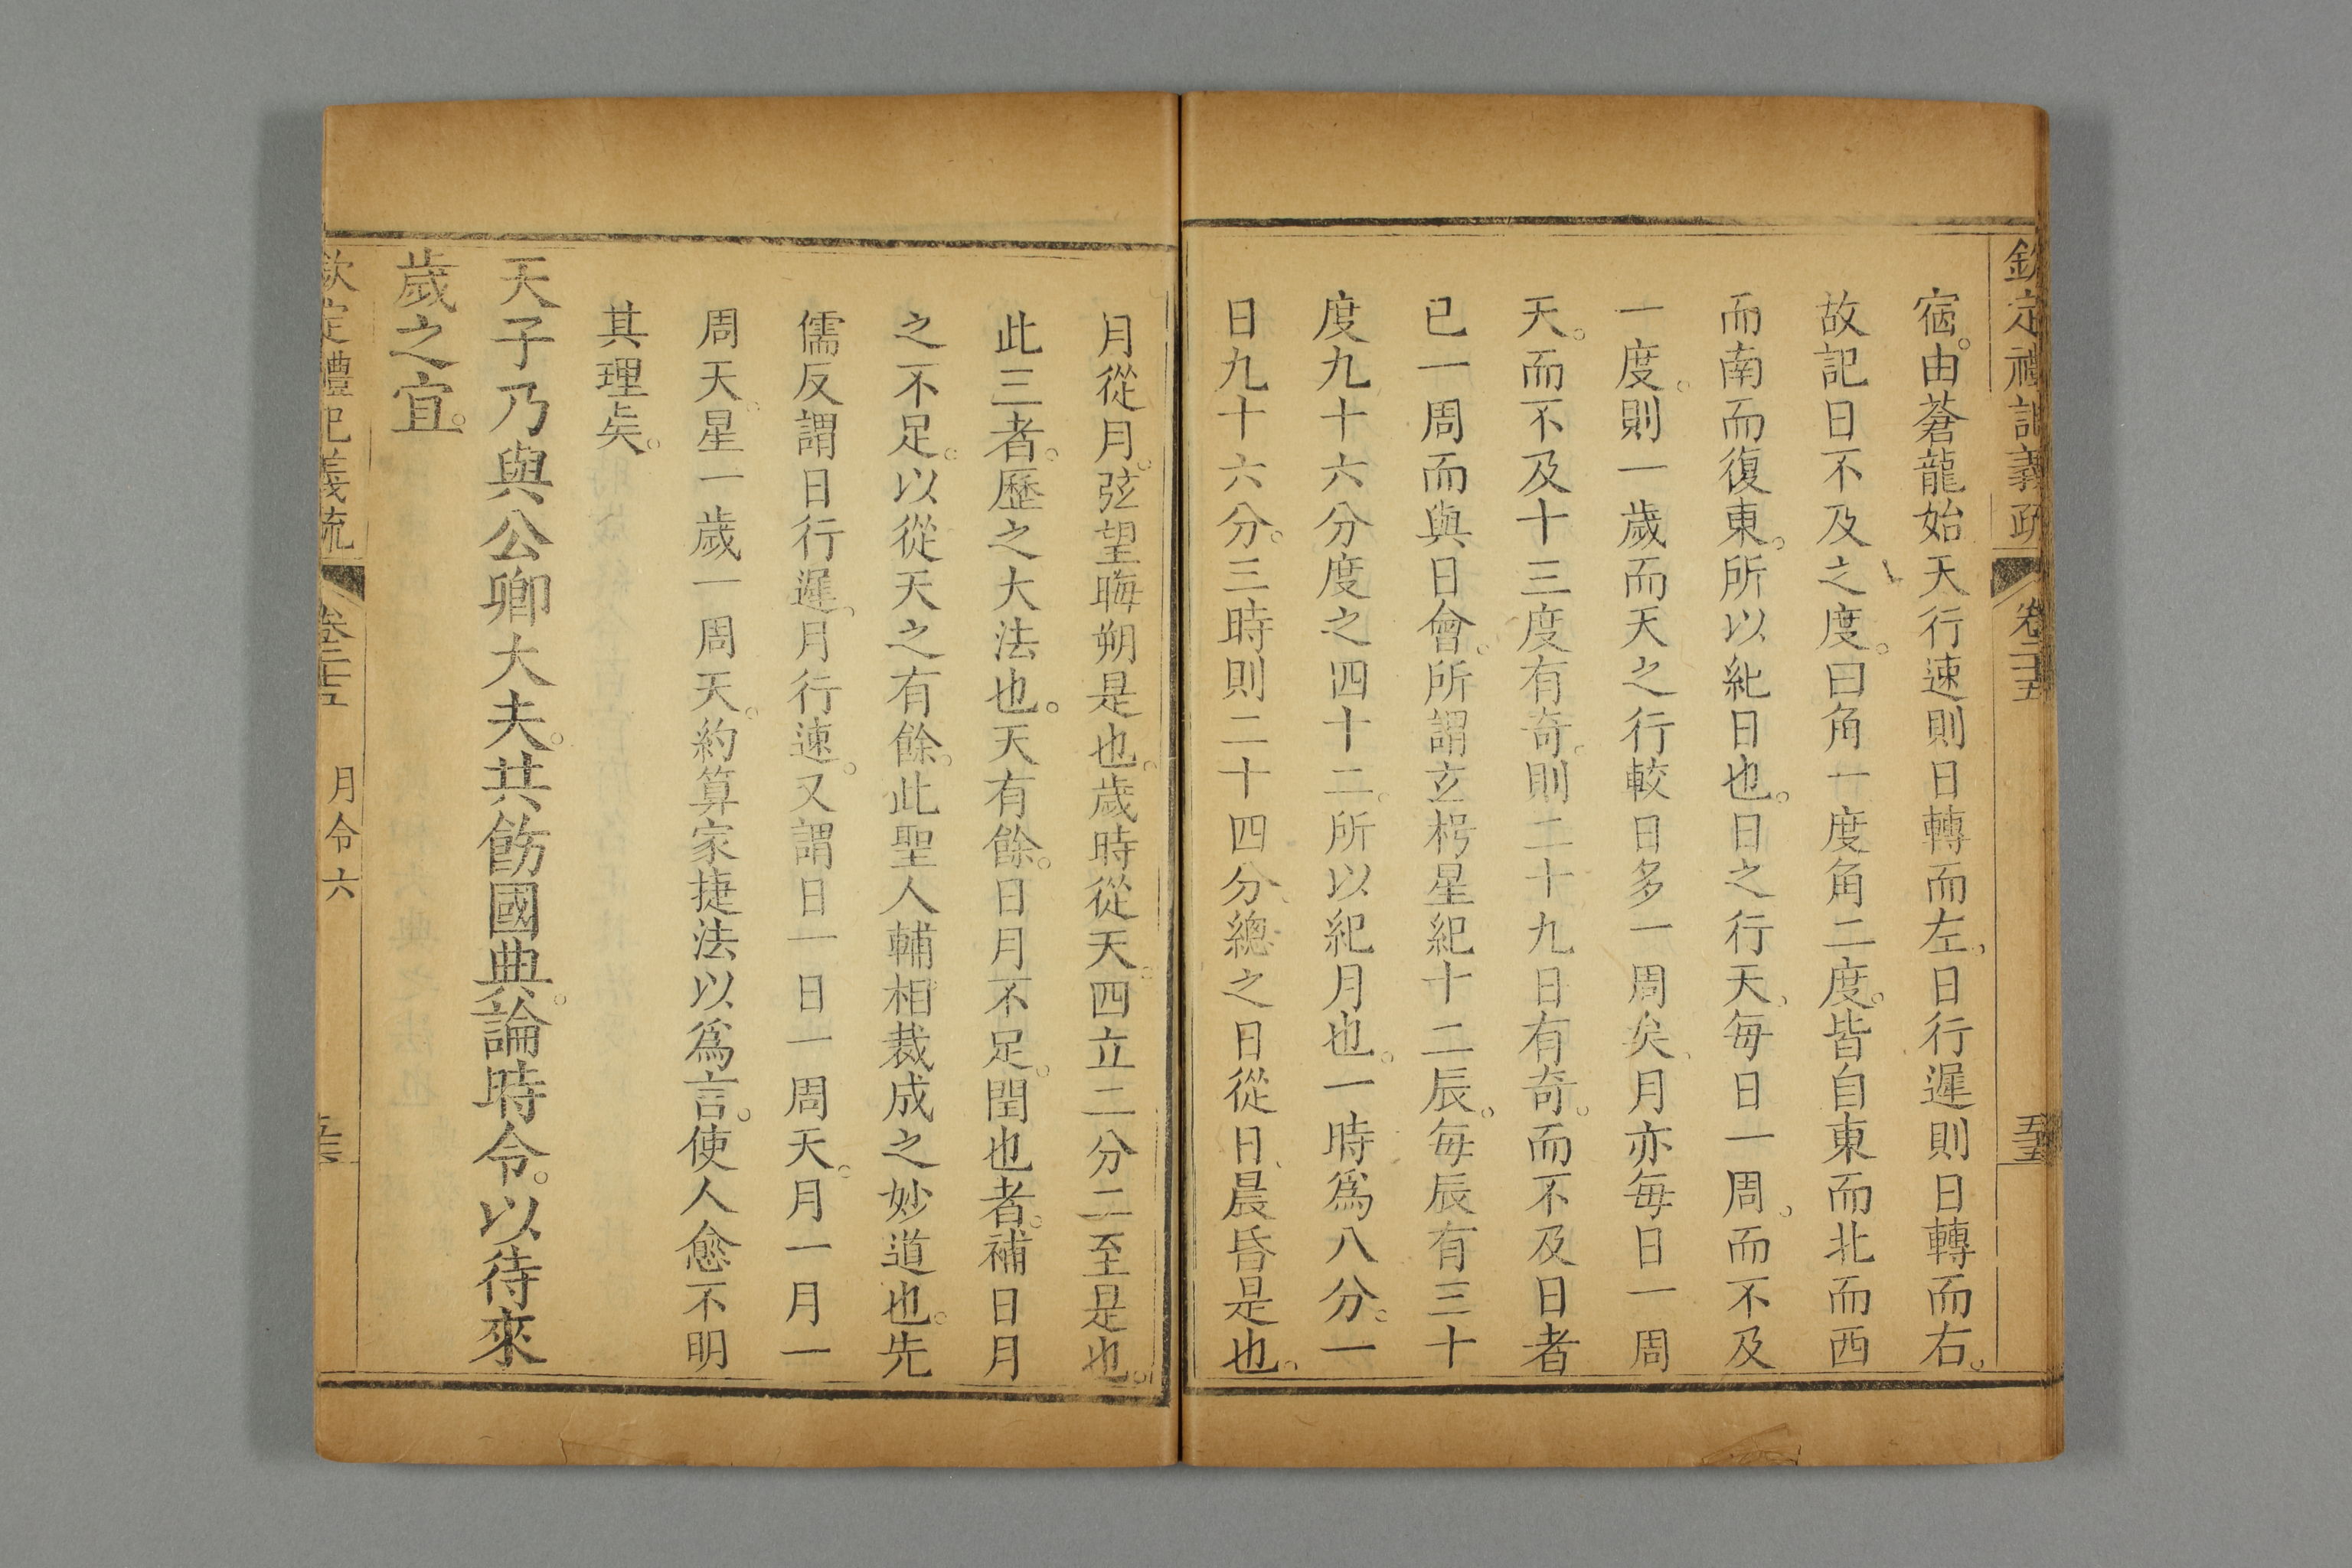 欽定禮記義疏 卷二十五
宿。由蒼龍始天行速則日轉而左、日行遲則日轉而右。
故記日不及之度。曰角一度角二度。皆自東而北而西
而南而復東。所以紀日也。日之行天、每日一周。而不及
一度。則一歲而天之行較日多一周矣、月亦每日一周
天。而不及十三度有奇。則二十九日有奇。而不及日者
已一周而與日會。所謂玄枵星紀十二辰。每辰有三十
度九十六分度之四十二。所以紀月也。一時為八分。一
日九十六分。三時則二十四分、總之日從日、晨昏是也。
月從月。弦望晦朔是也。歲時從天。四立二分二至是也。
此三者。歷之大法也。天有餘。日月不足。閏也者。補日月
之不足。以從天之有餘。此聖人輔相裁成之妙道也。先
儒反謂日行遲、月行速。又謂日一日一周天。月一月一
周天。星一歲一周天。約算家捷法以為言。使人愈不明
其理矣。
天子乃與公卿大夫。共飭國典。論時令。以待來
歲之宜。
欽定禮記義疏 卷二十五 月令六